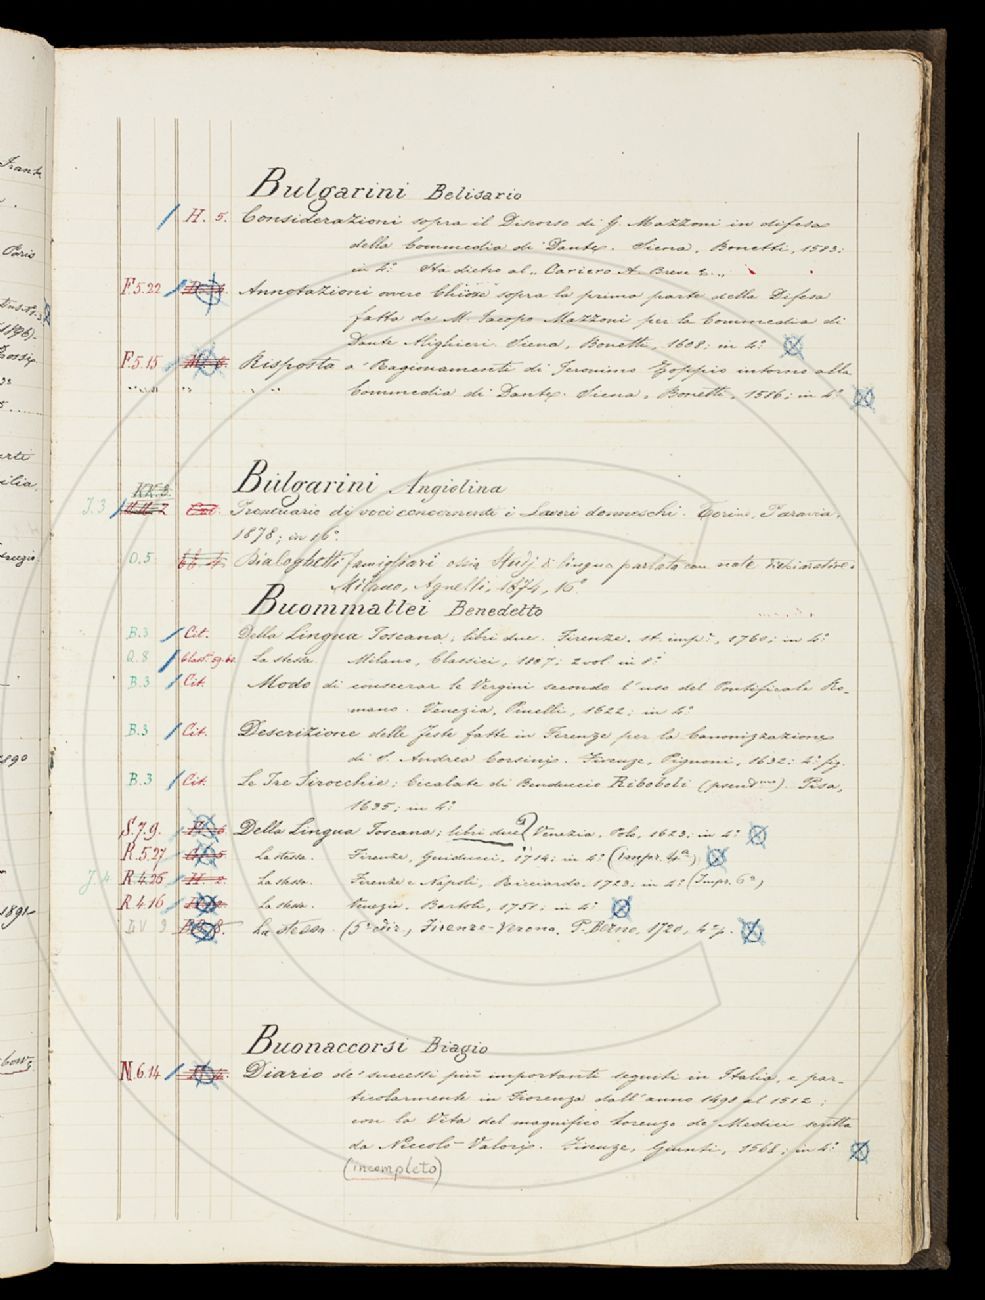 Bulgarini Belisario
H. 5. Considerazioni sopra il Discorso di G. Mazzoni in difesa
della Commedia di Dante. Siena, Bonetti, 1583;
in 4.° Sta dietro al
F.5.22 Annotazioni ovvero Chiose sopra la prima parte della Difesa
fatta da M. Jacopo Mazzoni per la Commedia di
Dante Alighieri. Siena, Bonetti, 1608; in 4.°
F.5.15 Risposta a' Ragionamenti di Jeronimo Zoppio intorno alla
Commedia di Dante. Siena, Bonetti, 1586; in 4.°
Bulgarini Angiolina
J.3 Cat. Prontuario di voci concernenti i Lavori donneschi. Torino, Paravia,
1878; in 16.°
O.5 Dialoghetti famigliari ossia Studj di lingua parlata con note
Milano, Agnelli, 1874, 16.°
Buommattei Benedetto
B.3 Cit. Della Lingua Toscana, libri due. Firenze, St. imp.e, 1760; in 4.°
Q.8 Class.i 59-60 La stessa. Milano, Classici, 1807; 2 vol. in 8.°
B.3 Cit. Modo di consecrar le Vergini secondo l'uso del Pontificale Ro-
mano. Venezia, Pinelli, 1622; in 4.°
B.3 Cit. Descrizione delle feste fatte in Firenze per la Canonizzazione
di S. Andrea Corsini. Firenze, Pignoni, 1632; 4.° fig.
B.3 Cit. Le Tre Sirocchie; Cicalate di Benduccio Riboboli (pseud.mo). Pisa,
1635; in 4.°
S.7.9. Della Lingua Toscana; libri due, Venezia, 1623; in 4.°
R.5.27 La stessa. Firenze, Guiducci, 1714; in 4.° (Impr. 4.a)
J.4 R.4.26 H. 2. La stessa. Firenze e Napoli, Ricciardo, 1723; in 4.° (Impr. 6.a)
R.4.16 La stessa. Venezia, Bartoli, 1751; in 4.°
LV 9 La stessa. (5.a ediz.), Firenze-Verona, P. Berno, 1720, 4.°
Buonaccorsi Biagio
N.6.14 Diario de' successi più importanti seguiti in Italia, e par-
ticolarmente in Fiorenza dall'anno 1498 al 1512;
con la Vita del magnifico Lorenzo de' Medici scritta
da Niccolò Valori. Firenze, Giunti, 1568; in 4.°
(incompleto)